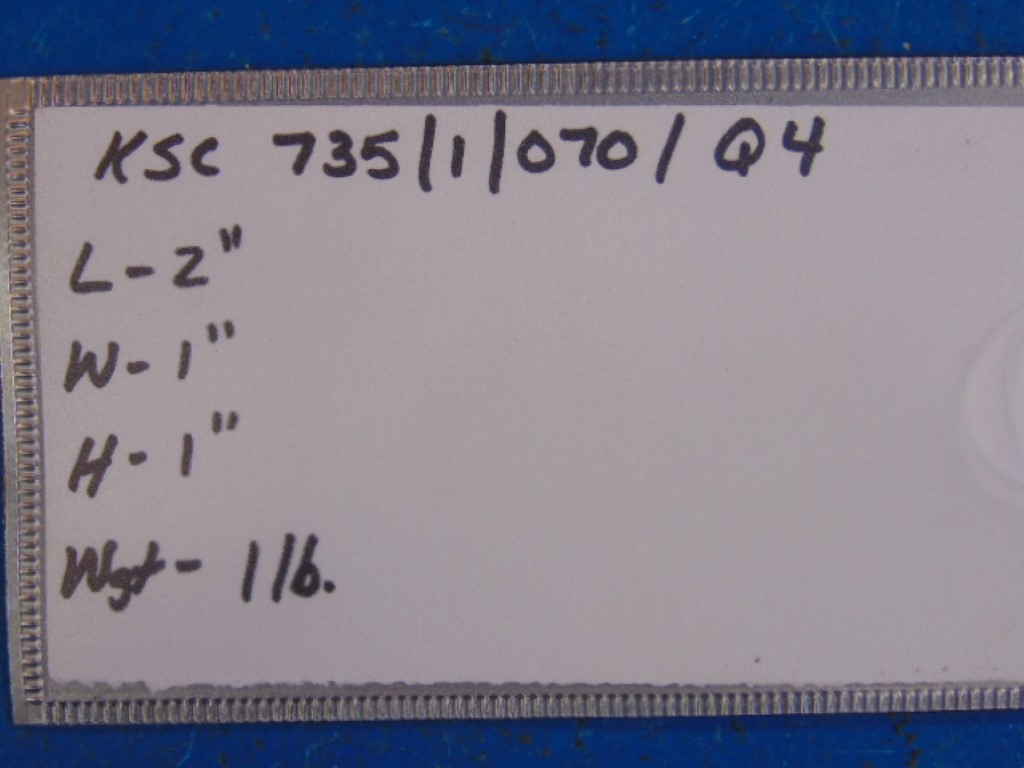 KSC 735/1/070/ Q4
L-2"
W-1"
H-1"
Wgt- 1 lb.